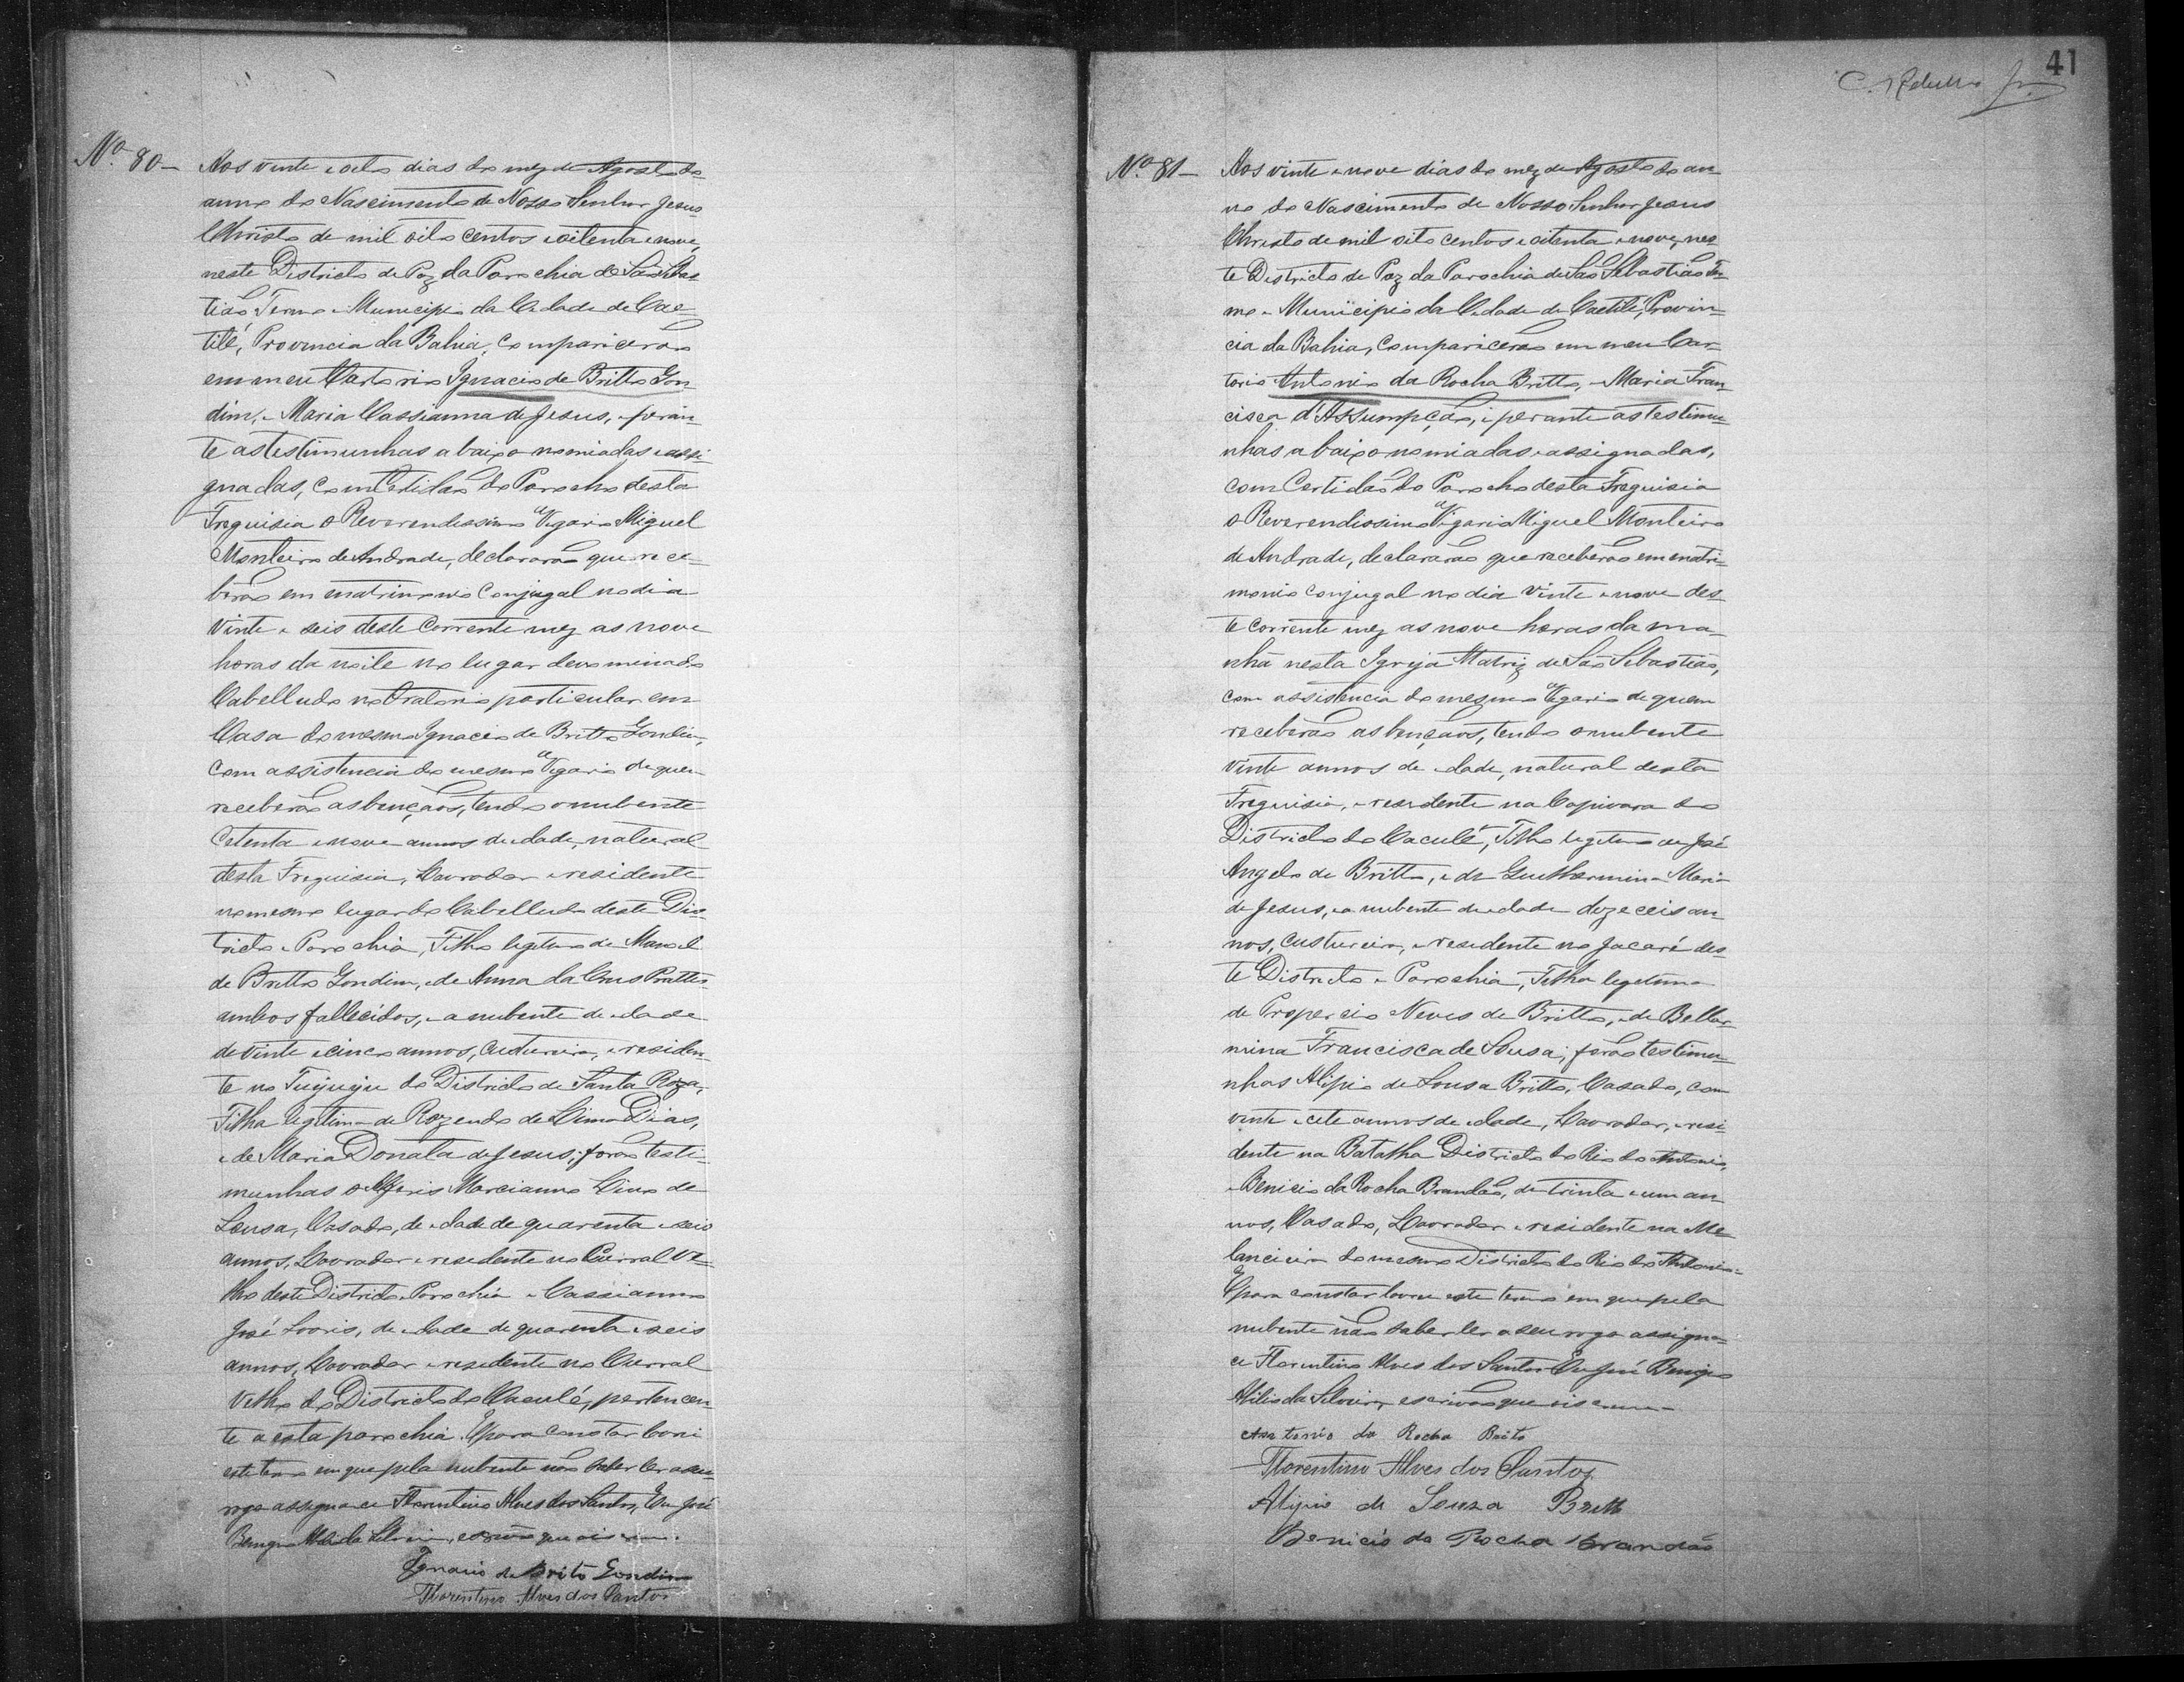 Nº 80 –
Aos vinte e oito dias do mez de Agosto do
anno do Nascimento de Nosso Senhor Jesus
Christo de mil oito centos e oitenta e nove,
neste Districto de Paz da Parochia de São Sebas-
tião Termo e Municipio da Cidade de Cae-
tité, Provincia da Bahia, comparicerão
em meu Cartorio Ignacio de Britto Gon-
dim, e Maria Cassianna de Jesus, e peran-
te as testimunhas a baixo nomiadas e assi-
gnadas, com Certidão do Parocho desta
Freguisia o Reverendissimo Vigario Miguel
Monteiro de Andrade, declararão que rece-
berão em matrimonio Conjugal no dia
Vinte e seis deste Corrente mez as nove
horas da noite no lugar denominado
Cabelludo no Oratorio particular em
Casa do mesmo Ignacio de Britto Gondim,
com assistencia do mesmo Vigario de quem
receberão as bençaos, tendo o nubente
Cetenta e nove annos de idade, natural
desta Freguisia, Lavrador e residente
no mesmo lugar do Cabelludo deste Dis-
tricto e Parochia, Filho legitimo de Manoel
de Britto Gondim, e de Anna da Crus
ambos fallecidos, e a nubente de idade
de vinte e cinco annos, Custureira, e residen-
te no Tuyuyu do Districto de Santa Roza,
Filha legitima de Rozendo de Lima Dias,
e de Maria Donata de Jesus; forão testi-
munhas Marcianno Lino de
Sousa, Casado, de idade de quarenta e seis
annos, Lavrador e residente no Curral Ve-
lho deste Districto e Parochia e Cassianno
José Soares, de idade de quarenta e seis
annos, Lavrador e residente no Curral
Velho do Districto do Caculé, pertencen-
te a esta parochia. E para constar lavrei
este termo em que pela nubente não saber ler a seu
rogo assigna ce Florentino Alves dos Santos, Eu José
Benigno da Silveira, escrivão que
Ignacio de Brito Gondim
Florentino Alves dos Santos
41
Nº 81 –
Aos vinte e nove dias do mez de Agosto do an-
no do Nascimento de Nosso Senhor Jesus
Christo de mil oito centos e oitenta e nove, nes-
te Districto de Paz da Parochia de São Sebastião Ter-
mo e Municipio da Cidade de Caetité, Provin-
cia da Bahia, Comparicerão em meu Car-
torio Antonio da Rocha Britto, e Maria Fran-
cisca d'Assumpção, e perante as testimu-
nhas a baixo nomiadas e assignadas,
com Certidão do Parocho desta Freguisia
o Reverendissimo Vigario Miguel Monteiro
de Andrade, declararão que receberão em matri-
monio conjugal no dia vinte e nove des-
te corrente mez as nove horas da ma-
nhã nesta Igreja Matriz de São Sebastião,
com assistencia do mesmo Vigario de quem
receberão as bençaos, tendo o nubente
vinte annos de idade, natural desta
Freguisia, e residente na Capivara do
Districto do Caculé, Filho legitimo de José
Angelo de Britto, e de Guilhermina Maria
de Jesus, e a nubente de idade dezeceis an-
nos, custureira, e residente no Jacaré des-
te Districto e Parochia, Filha legitima
de Propercio Neves de Britto, e de Bellar-
mina Francisca de Sousa; forão testimu-
nhas Alipio de Sousa Britto, Casado, com
vinte e cete annos de idade, Lavrador, e resi-
dente na Batalha Districto do Rio do Antonio,
e Benicio da Rocha Brandão, de trinta e um an-
nos, Casado, Lavrador e residente na Me-
lanceira do mesmo Districto do Rio do Antonio.
E para constar lavrei este termo em que pela
nubente não saber ler a seu rogo assigna-
ce Florentino Alves dos Santos Eu José Benigno
da Silveira, escrivão que
Antonio da Rocha Brito
Florentino Alves dos Santos
Alipio de Souza Britto
Benicio da Rocha Brandão